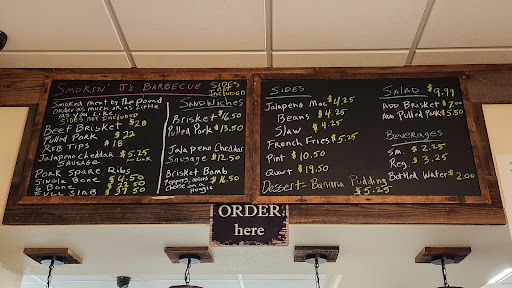 SMOKIN' J'S BARBECUE
Smoked meat by the pound
order as much or as little
as you like.
Sides not Included
Beef Brisket $28
Pulled Pork $22
Rib Tips $18
Jalapeno Cheddar $5.25
Sausage per link
Pork Spare Ribs
Single Bone $4.50
Bone $22.50
Full Slab $37.50
SIDES
NOT
INCLUDED
SANDWICHES
Brisket $16.50
Pulled Pork $13.50
Jalapeno Cheddar
Sausage $12.50
Brisket Bomb
Peppers, onions $16.50
Cheese on a
Hoagie
SIDES
Jalapeno Mac $4.25
Beans $4.25
Slaw $4.25
French Fries $5.25
Pint $10.50
Quart $19.50
Dessert- Banana Pudding
$5.25
SALAD $9.99
Add Brisket $7.00
Add Pulled Pork $5.50
Beverages
Sm. $2.25
Reg. $3.25
Bottled Water $2.00
ORDER
here